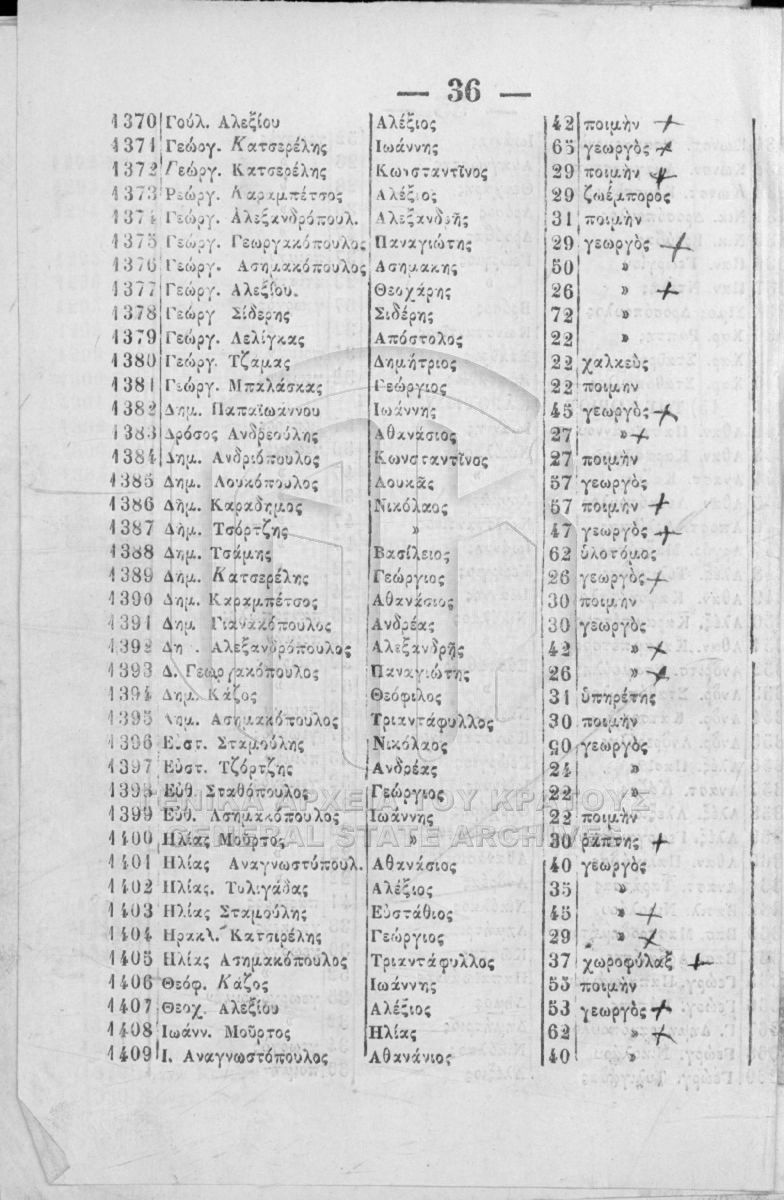 — 36 —
1370 Γούλ. Αλεξίου Αλέξιος 42 ποιμὴν
1371 Γεώργ. Κατσερέλης Ιωάννης 65 γεωργὸς
1372 Γεώργ. Κατσερέλης Κωνσταντῖνος 29 ποιμὴν
1373 Γεώργ. Καραμπέτσος Αλέξιος 29 ζωέμπορος
1374 Γεώργ. Αλεξανδρόπουλ. Αλεξανδρῆς 31 ποιμὴν
1375 Γεώργ. Γεωργακόπουλος Παναγιώτης 29 γεωργὸς
1376 Γεώργ. Ασημακόπουλος Ασημακης 50 »
1377 Γεώργ. Αλεξίου. Θεοχάρης 26 »
1378 Γεώργ Σίδερης Σιδέρης 72 »
1379 Γεώργ. Λελίγκας Απόστολος 22 »
1380 Γεώργ. Τζάμας Δημήτριος 22 χαλκεὺς
1381 Γεώργ. Μπαλάσκας Γεώργιος 22 ποιμην
1382 Δημ. Παπαϊωαννου Ιωάννης 45 γεωργὸς
1383 Δρόσος Ανδρεούλης Αθανάσιος 27 »
1384 Δημ. Ανδριόπουλος Κωνσταντῖνος 27 ποιμὴν
1385 Δημ. Λουκόπουλος Λουκᾶς 57 γεωργὸς
1386 Δημ. Καραδημος Νικόλαος 57 ποιμὴν
1387 Δημ. Τσόρτζης » 47 γεωργὸς
1388 Δημ. Τσάμης Βασίλειος 62 ὑλοτόμος
1389 Δημ. Κατσερέλης Γεώργιος 26 γεωργὸς
1390 Δημ. Καραμπέτσος Αθανάσιος 30 ποιμὴν
1391 Δημ Γιανακόπουλος Ανδρέας 30 γεωργὸς
1392 Δη . Αλεξανδρόπουλος Αλεξανδρῆς 42 »
1393 Δ. Γεωργακόπουλος Παναγιώτης 26 »
1394 Δημ. Κάζος Θεόφιλος 31 ὑπηρέτης
1395 Δημ. Ασημακόπουλος Τριαντάφυλλος 30 ποιμὴν
1396 Εὐστ. Σταμούλης Νικόλαος 90 γεωργὸς
1397 Εὐστ. Τζόρτζης Ανδρέας 24 »
1398 Εὐθ. Σταθόπουλος Γεώργιος 22 »
1399 Εὐθ. Ασημακόπουλος Ιωάννης 22 ποιμὴν
1400 Ηλίας Μοῦρτος » 30 ράπτης
1401 Ηλίας Αναγνωστόπουλ. Αθανάσιος 40 γεωργὸς
1402 Ηλίας. Τυλιγάδας Αλέξιος 35 »
1403 Ηλίας Σταμούλης Εὐστάθιος 45 »
1404 Ηρακλ. Κατσιρέλης Γεώργιος 29 »
1405 Ηλίας Ασημακόπουλος Τριαντάφυλλος 37 χωροφύλαξ
1406 Θεόφ. Κάζος Ιωάννης 55 ποιμὴν
1407 Θεοχ. Αλεξίου Αλέξιος 53 γεωργὸς
1408 Ιωάνν. Μοῦρτος Ηλίας 62 »
1409 Ι. Αναγνωστόπουλος Αθανάνιος 40 »
ΓΕΝΙΚΑ ΑΡΧΕΙΑ ΤΟΥ ΚΡΑΤΟΥΣ
GENERAL STATE ARCHIVES